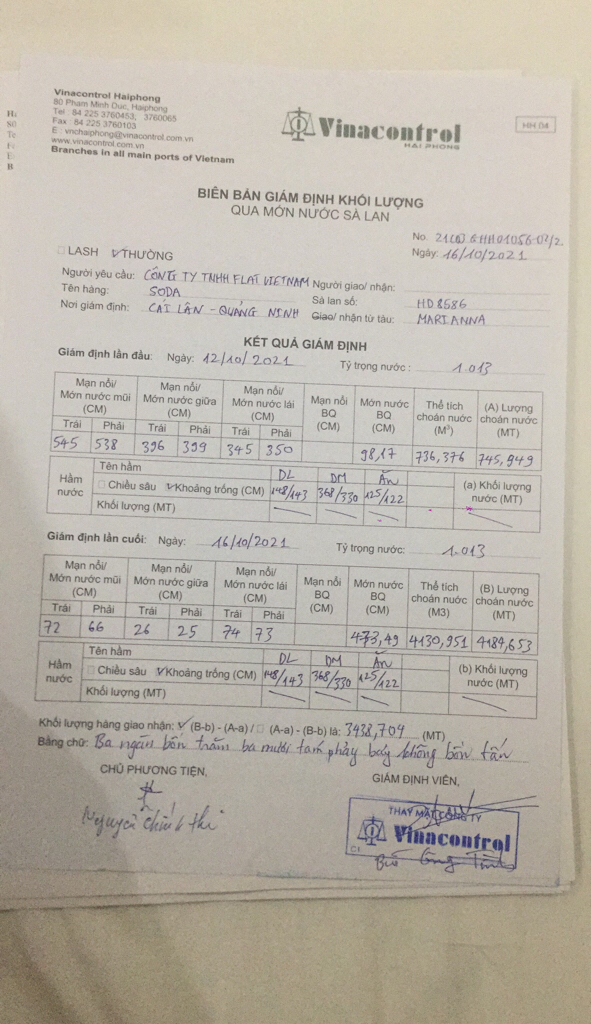 Vinacontrol Haiphong
80 Pham Minh Duc, Haiphong
Tel : 84 225 3760453; 3760065
Fax : 84 225 3760103
E : vnchaiphong@vinacontrol.com.vn
www.vinacontrol.com.vn
Branches in all main ports of Vietnam
Vinacontrol
HAI PHONG
HH 04
BIÊN BẢN GIÁM ĐỊNH KHỐI LƯỢNG
QUA MỚN NƯỚC SÀ LAN
No.
Ngày: 16/10/2021
LASH THƯỜNG
Người yêu cầu: CÔNG TY TNHH FLAT VIETNAM Người giao/ nhận:
Tên hàng: SODA Sà lan số: HD 8586
Nơi giám định: CÁI LÂN - QUẢNG NINH Giao/ nhận từ tàu: MARIANNA
KẾT QUẢ GIÁM ĐỊNH
Giám định lần đầu: Ngày: 12/10/2021 Tỷ trọng nước : 1.013
Mạn nổi/ Mớn nước mũi (CM) Mạn nổi/ Mớn nước giữa (CM) Mạn nổi/ Mớn nước lái (CM) Mạn nổi BQ (CM) Mớn nước BQ (CM) Thể tích choán nước (M³) (A) Lượng choán nước (MT)
Trái Phải Trái Phải Trái Phải
545 538 396 399 345 350 98,17 736,376 745,949
Hầm nước Tên hầm DL DM ĂN (a) Khối lượng nước (MT)
Chiều sâu Khoảng trống (CM) 148/143 368/330 125/122
Khối lượng (MT)
Giám định lần cuối: Ngày: 16/10/2021 Tỷ trọng nước: 1.013
Mạn nổi/ Mớn nước mũi (CM) Mạn nổi/ Mớn nước giữa (CM) Mạn nổi/ Mớn nước lái (CM) Mạn nổi BQ (CM) Mớn nước BQ (CM) Thể tích choán nước (M3) (B) Lượng choán nước (MT)
Trái Phải Trái Phải Trái Phải
72 66 26 25 74 73 473,49 4130,951 4184,653
Hầm nước Tên hầm DL DM ĂN (b) Khối lượng nước (MT)
Chiều sâu Khoảng trống (CM) 148/143 368/330 125/122
Khối lượng (MT)
Khối lượng hàng giao nhận: (B-b) - (A-a) / (A-a) - (B-b) là: 3438,704 (MT)
Bằng chữ: Ba ngàn bốn trăm ba mươi tám phảy bảy không bốn tấn
CHỦ PHƯƠNG TIỆN, GIÁM ĐỊNH VIÊN,
THAY MẶT CÔNG TY
Vinacontrol